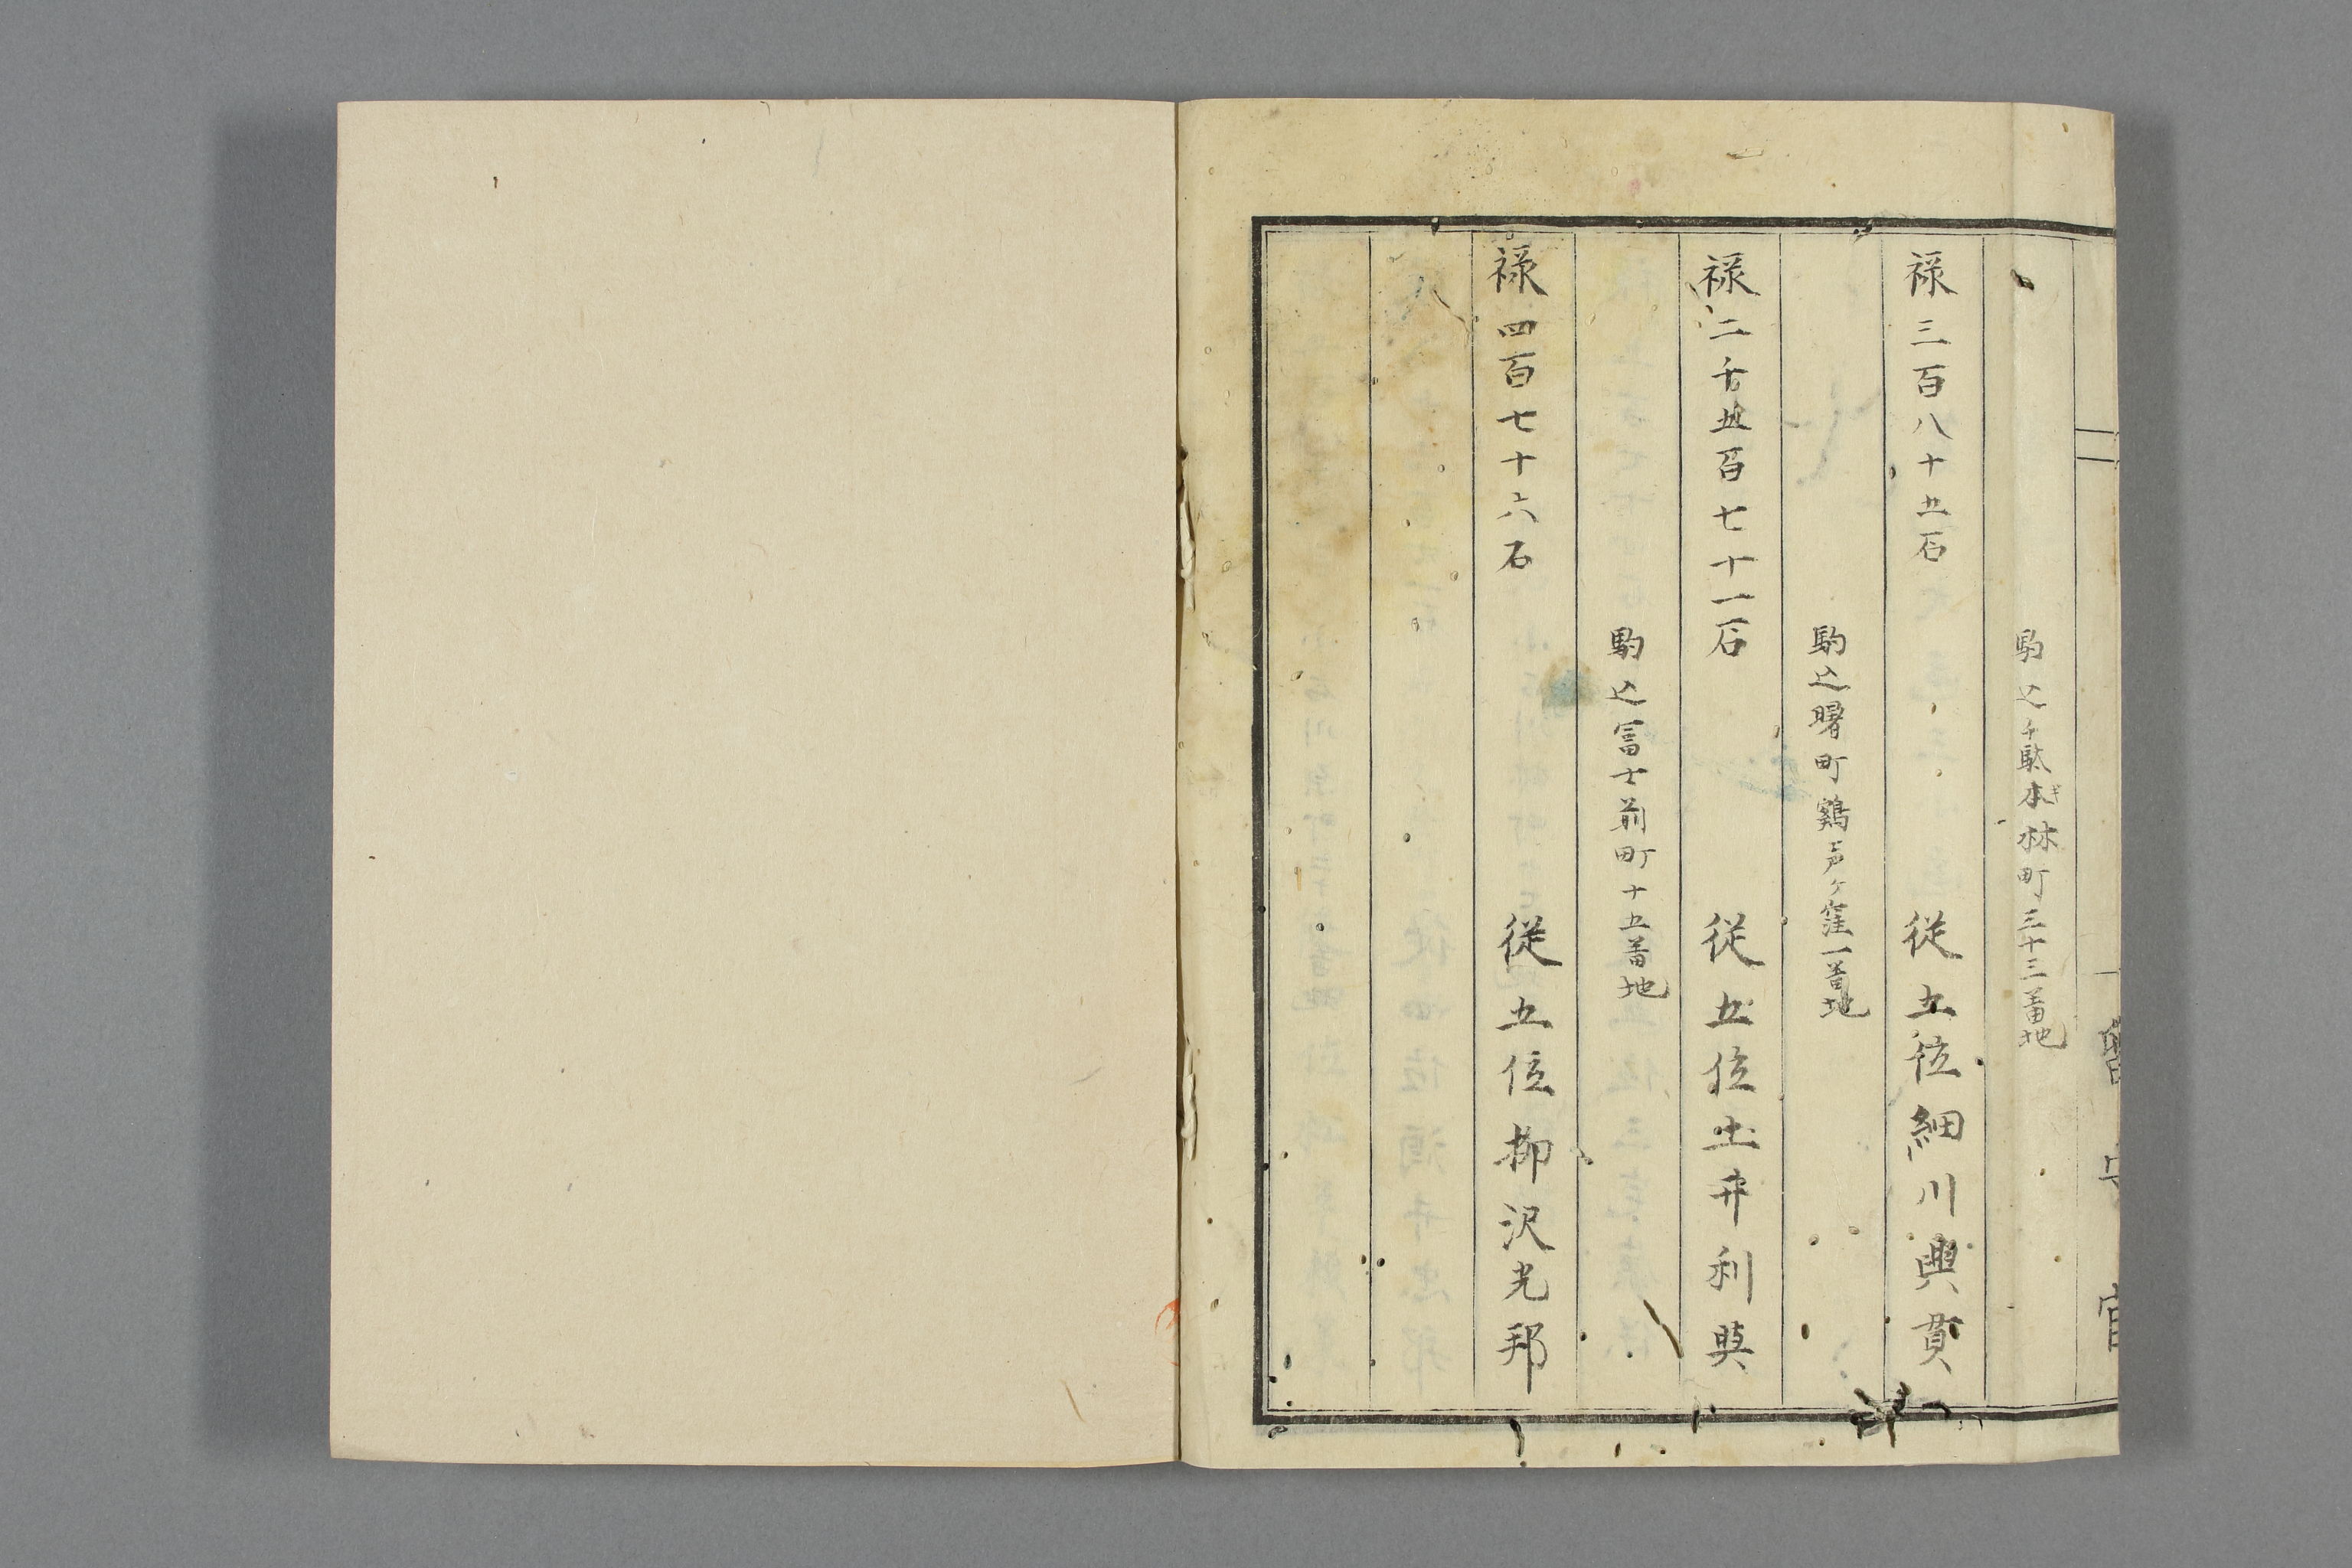 駒込千駄本ギ林町三十三番地
禄三百八十五石 従五位細川興貫
駒込曙町鶏声ヶ窪一番地
禄二千五百七十一石 従五位土井利與
駒込冨士前町十五番地
禄四百七十六石 従五位柳沢光邦